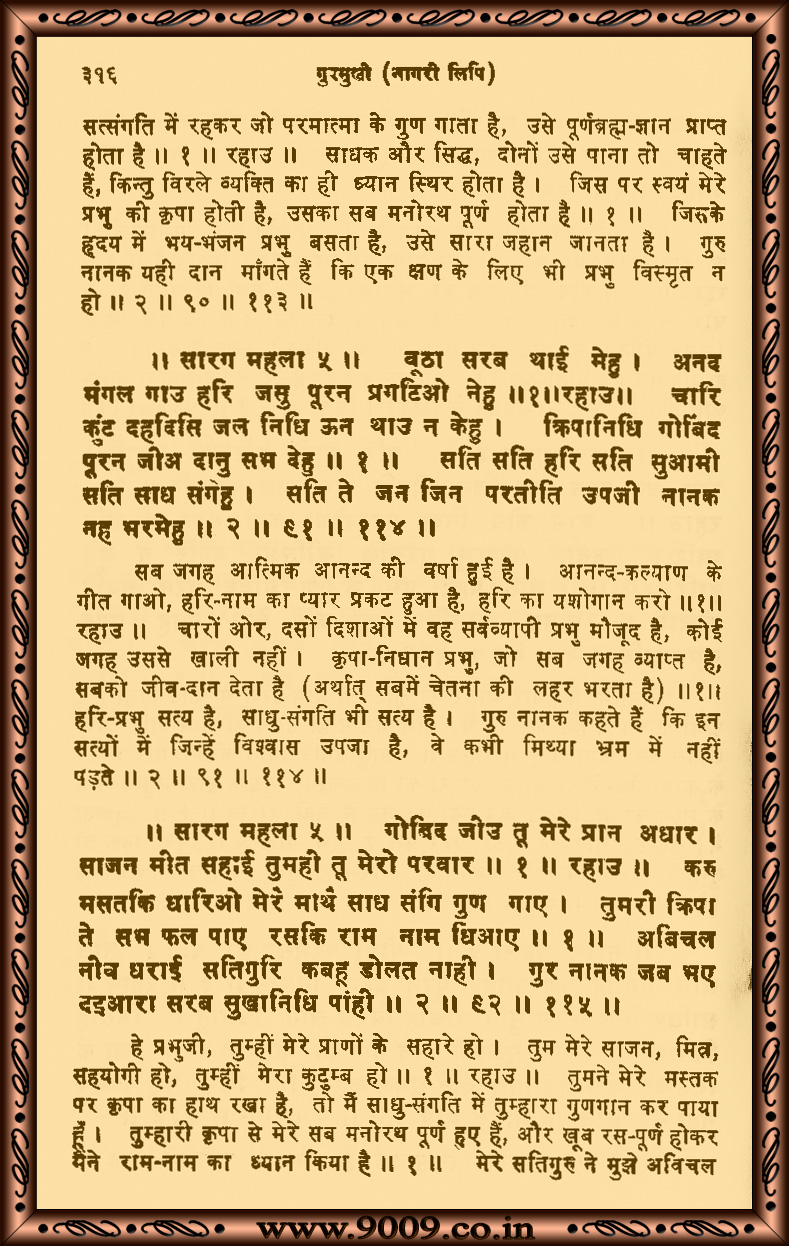 ३१६ गुरमुखी (नागरी लिपि)
सत्संगति में रहकर जो परमात्मा के गुण गाता है, उसे पूर्णब्रह्म-ज्ञान प्राप्त
होता है ॥ १ ॥ रहाउ ॥ साधक और सिद्ध, दोनों उसे पाना तो चाहते
हैं, किन्तु विरले व्यक्ति का ही ध्यान स्थिर होता है । जिस पर स्वयं मेरे
प्रभु की कृपा होती है, उसका सब मनोरथ पूर्ण होता है ॥ १ ॥ जिसके
हृदय में भय-भंजन प्रभु बसता है, उसे सारा जहान जानता है । गुरु
नानक यही दान माँगते हैं कि एक क्षण के लिए भी प्रभु विस्मृत न
हो ॥ २ ॥ ९० ॥ ११३ ॥
॥ सारग महला ५ ॥ वूठा सरब थाई मेहु । अनद
मंगल गाउ हरि जसु पूरन प्रगटिओ नेहु ॥१॥रहाउ॥ चारि
कुंट दहदिसि जल निधि ऊन थाउ न केहु । क्रिपानिधि गोबिंद
पूरन जीअ दानु सभ देहु ॥ १ ॥ सति सति हरि सति सुआमी
सति साध संगेहु । सति ते जन जिन परतीति उपजी नानक
नह भरमेहु ॥ २ ॥ ९१ ॥ ११४ ॥
सब जगह आत्मिक आनन्द की वर्षा हुई है । आनन्द-कल्याण के
गीत गाओ, हरि-नाम का प्यार प्रकट हुआ है, हरि का यशोगान करो ॥१॥
रहाउ ॥ चारों ओर, दसों दिशाओं में वह सर्वव्यापी प्रभु मौजूद है, कोई
जगह उससे खाली नहीं । कृपा-निधान प्रभु, जो सब जगह व्याप्त है,
सबको जीव-दान देता है (अर्थात् सबमें चेतना की लहर भरता है) ॥१॥
हरि-प्रभु सत्य है, साधु-संगति भी सत्य है । गुरु नानक कहते हैं कि इन
सत्यों में जिन्हें विश्वास उपजा है, वे कभी मिथ्या भ्रम में नहीं
पड़ते ॥ २ ॥ ९१ ॥ ११४ ॥
॥ सारग महला ५ ॥ गोबिद जीउ तू मेरे प्रान अधार ।
साजन मीत सहाई तुमही तू मेरो परवार ॥ १ ॥ रहाउ ॥ करु
मसतकि धारिओ मेरै माथै साध संगि गुण गाए । तुमरी क्रिपा
ते सभ फल पाए रसकि राम नाम धिआए ॥ १ ॥ अबिचल
नीव धराई सतिगुरि कबहू डोलत नाही । गुर नानक जब भए
दइआरा सरब सुखानिधि पांही ॥ २ ॥ ९२ ॥ ११५ ॥
हे प्रभुजी, तुम्हीं मेरे प्राणों के सहारे हो । तुम मेरे साजन, मित्र,
सहयोगी हो, तुम्हीं मेरा कुटुम्ब हो ॥ १ ॥ रहाउ ॥ तुमने मेरे मस्तक
पर कृपा का हाथ रखा है, तो मैं साधु-संगति में तुम्हारा गुणगान कर पाया
हूँ । तुम्हारी कृपा से मेरे सब मनोरथ पूर्ण हुए हैं, और खूब रस-पूर्ण होकर
मैंने राम-नाम का ध्यान किया है ॥ १ ॥ मेरे सतिगुरु ने मुझे अविचल
www.9009.co.in